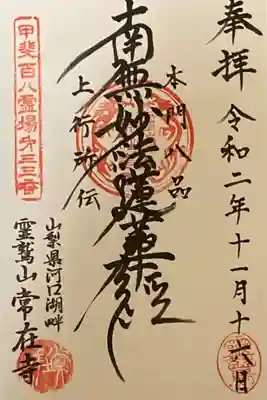 奉拝 令和二年十一月十六日
本門八品
南無妙法蓮華経
上行所伝
甲斐百八霊場第三三番
山梨県河口湖畔
霊鷲山 常在寺